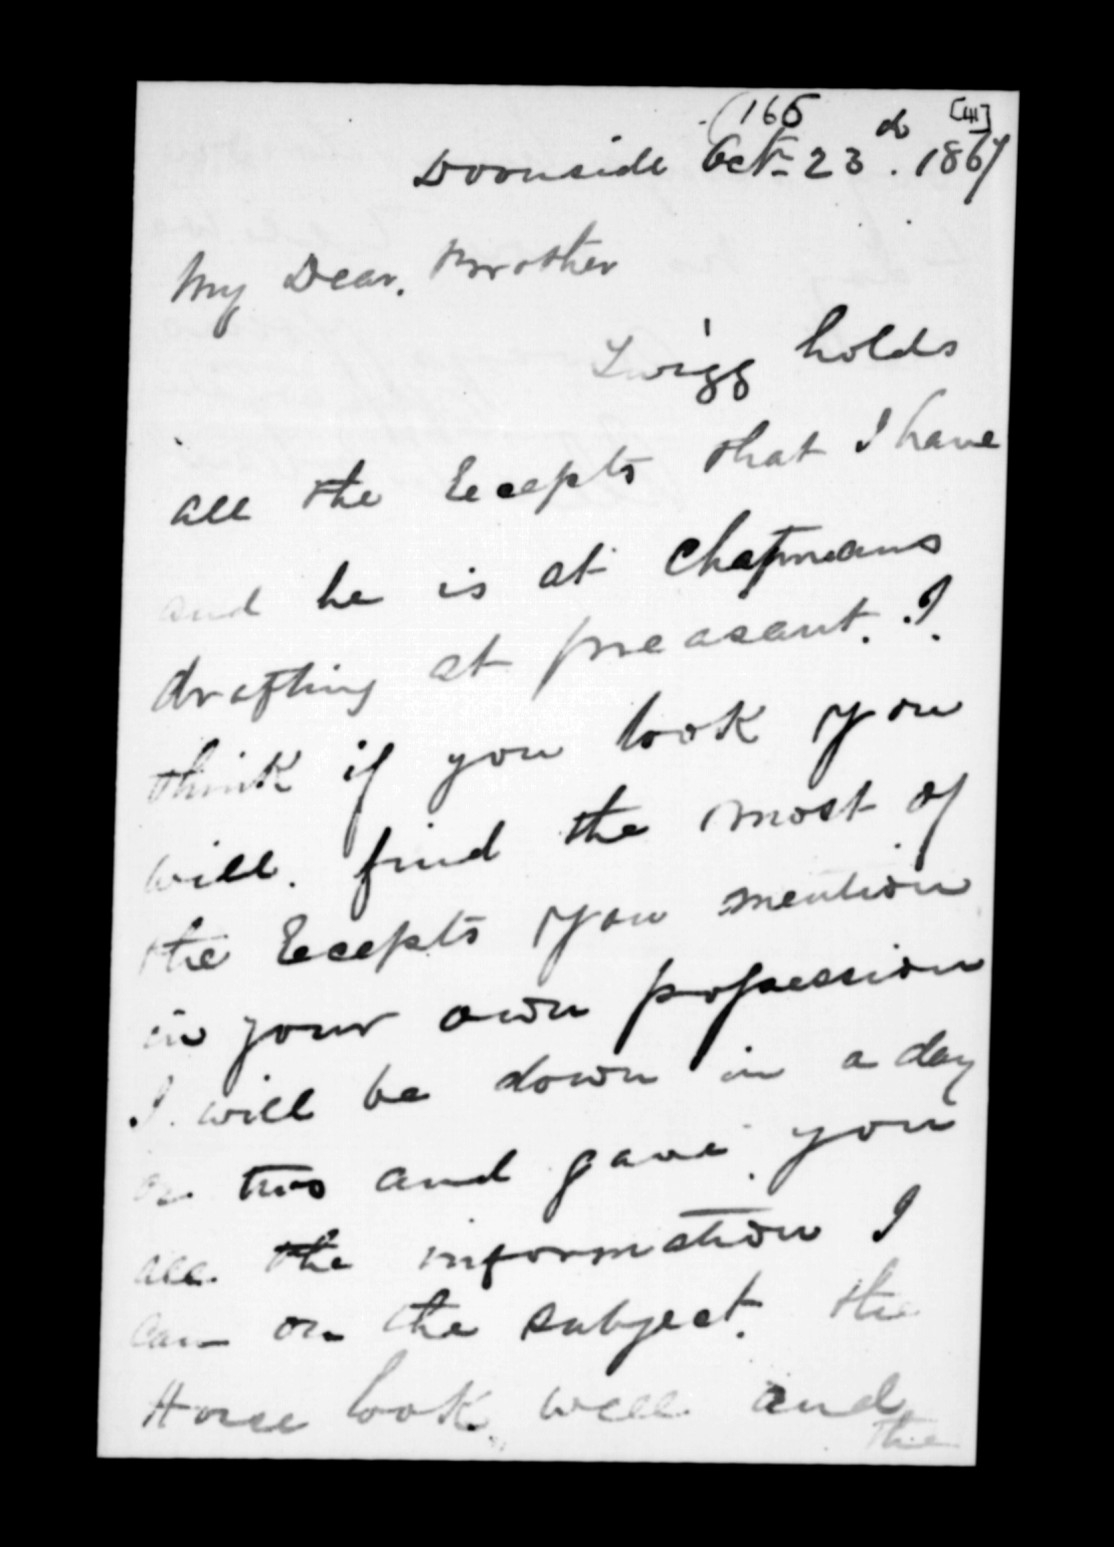 (165 [41]
Doonside Octr 23d. 1867
My Dear. Brother
Twigg holds
all the Recepts that I have
and he is at Chapmans
drafting at preasant. I.
think if you look you
will. find the most of
the Recepts you mention
in your own possession
I. will be down in a day
or two and gave you
all. the information I
can on the subject. the
Horse look well and
the